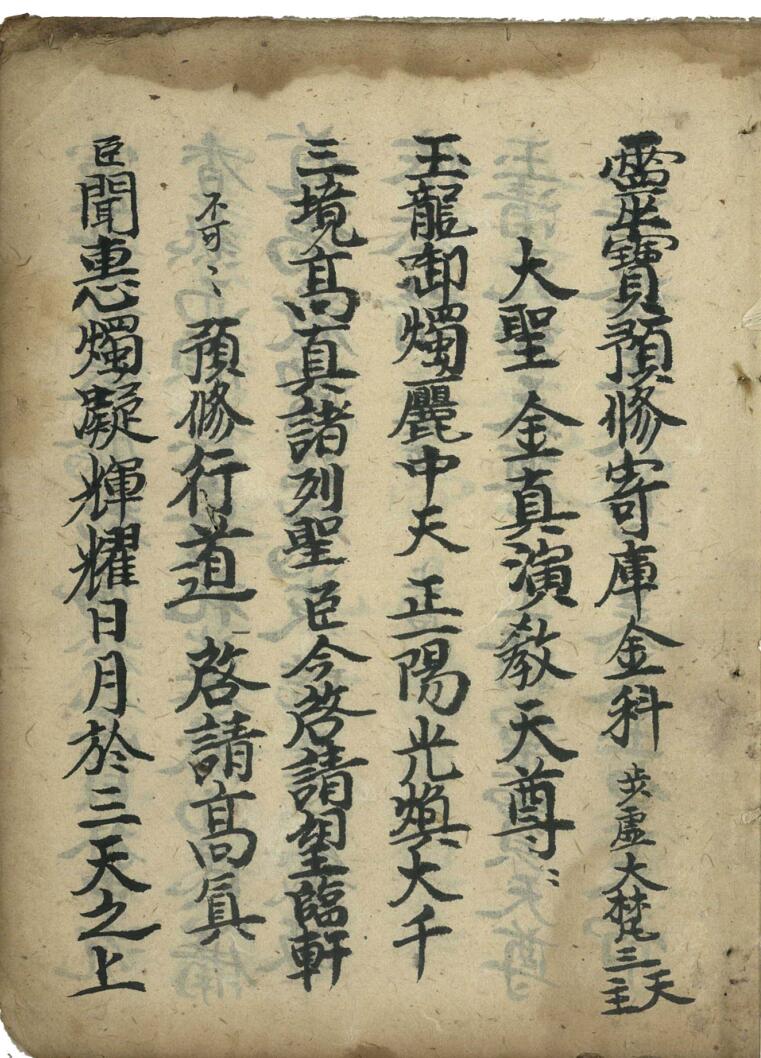 靈寶預修寄庫金科 步虛大梵三天主
大聖金真演教天尊〻
玉龍御燭麗中天 正一陽光煥大千
三境高真諸列聖 臣今啓請望臨軒
不可〻 預修行道 啓請高真
臣聞惠燭凝輝耀日月於三天之上